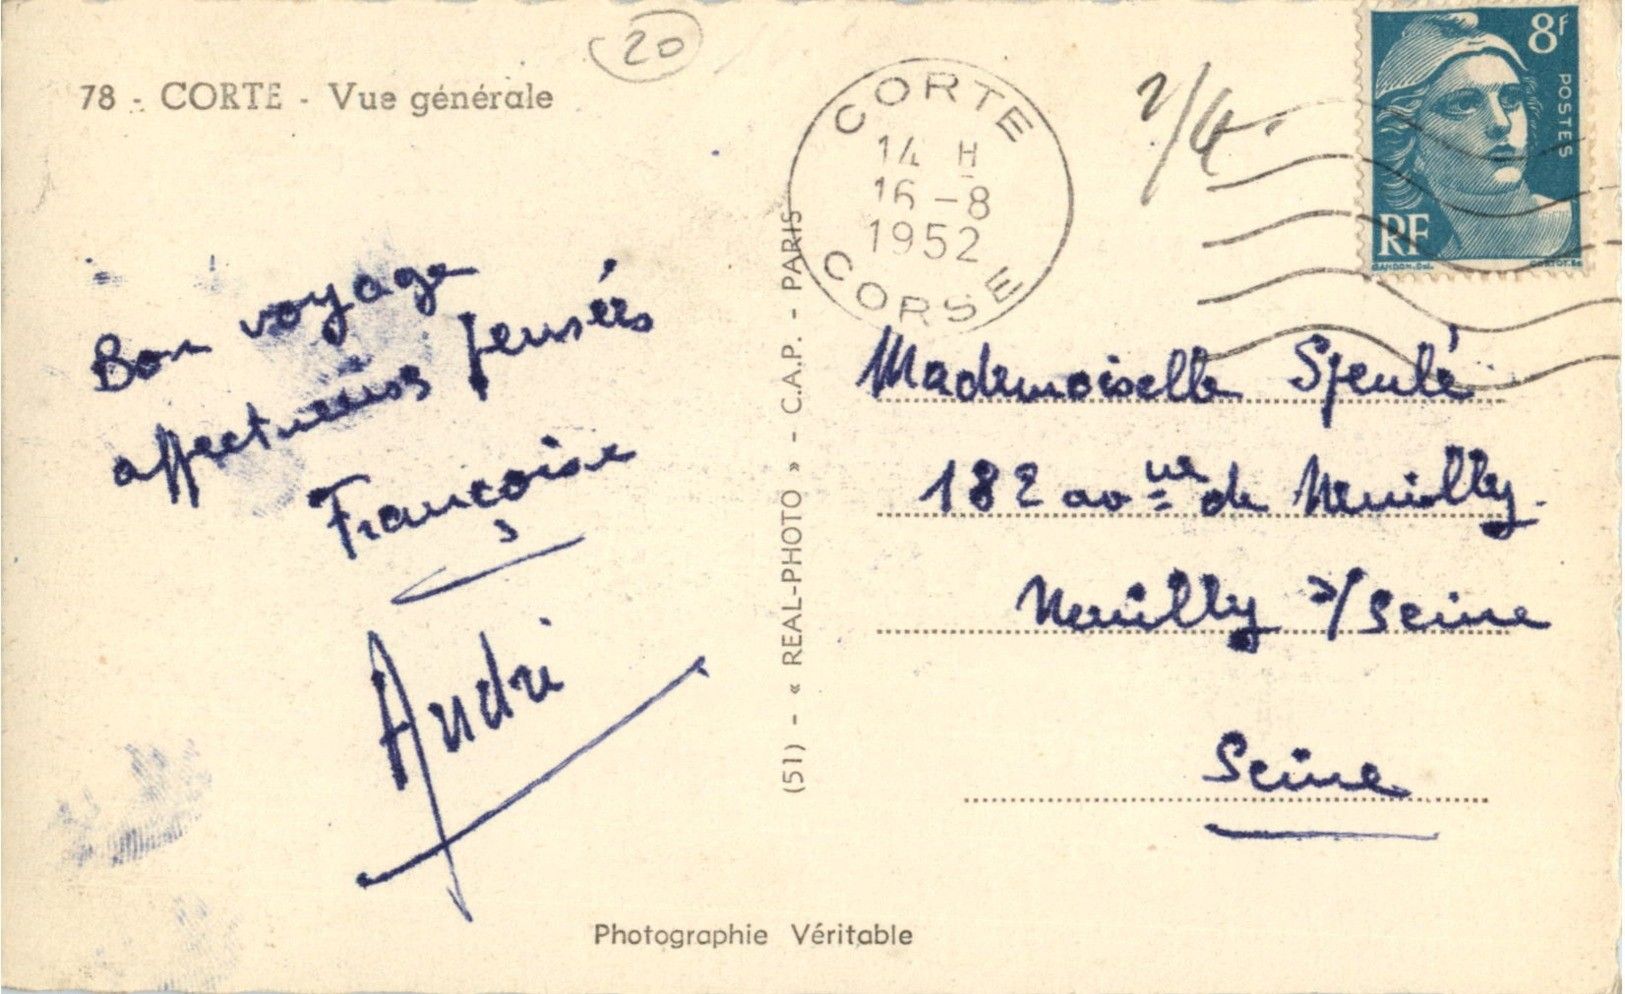 20
78 - CORTE - Vue générale
CORTE
14 H
16-8
1952
CORSE
2/4
8F
POSTES
RF
GANDON. Del.
Bon voyage
affectueuses pensées
Françoise
André
(51) - « REAL-PHOTO » - C.A.P. - PARIS
Mademoiselle
182 avnue de Neuilly.
Neuilly s/Seine
Seine
Photographie Véritable